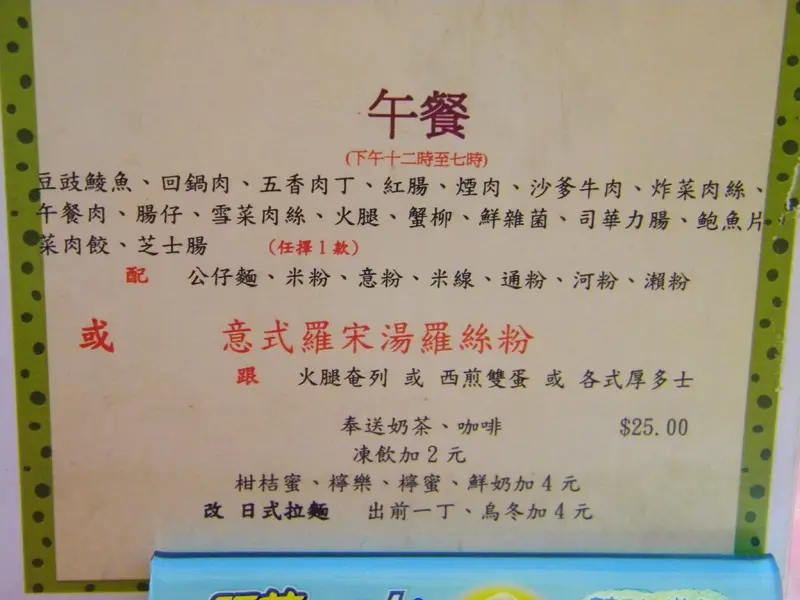 午餐
(下午十二時至七時)
豆豉鯪魚、回鍋肉、五香肉丁、紅腸、煙肉、沙爹牛肉、炸菜肉絲、
午餐肉、腸仔、雪菜肉絲、火腿、蟹柳、鮮雜菌、司華力腸、鮑魚片、
菜肉餃、芝士腸 (任擇1款)
配 公仔麵、米粉、意粉、米線、通粉、河粉、瀨粉
或 意式羅宋湯羅絲粉
跟 火腿奄列 或 西煎雙蛋 或 各式厚多士
奉送奶茶、咖啡 $25.00
凍飲加2元
柑桔蜜、檸樂、檸蜜、鮮奶加4元
改 日式拉麵 出前一丁、烏冬加4元